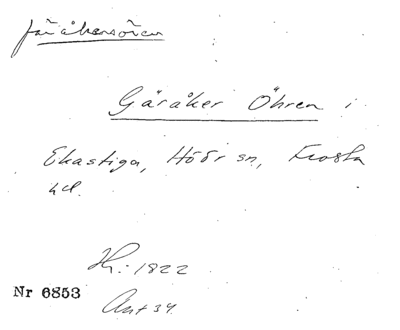 Gåråkersören
Gåråker Öhren i
Ekastiga, Höör sn, Frosta
hd.
Hr: 1822
Nr 6853
Akt 34.